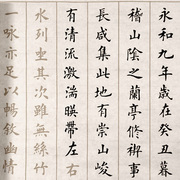 永和九年歲在癸丑暮
稽山陰之蘭亭脩禊事
長咸集此地有崇山峻
有清流激湍暎帶左右
水列坐其次雖無絲竹
一詠亦足以暢敘幽情